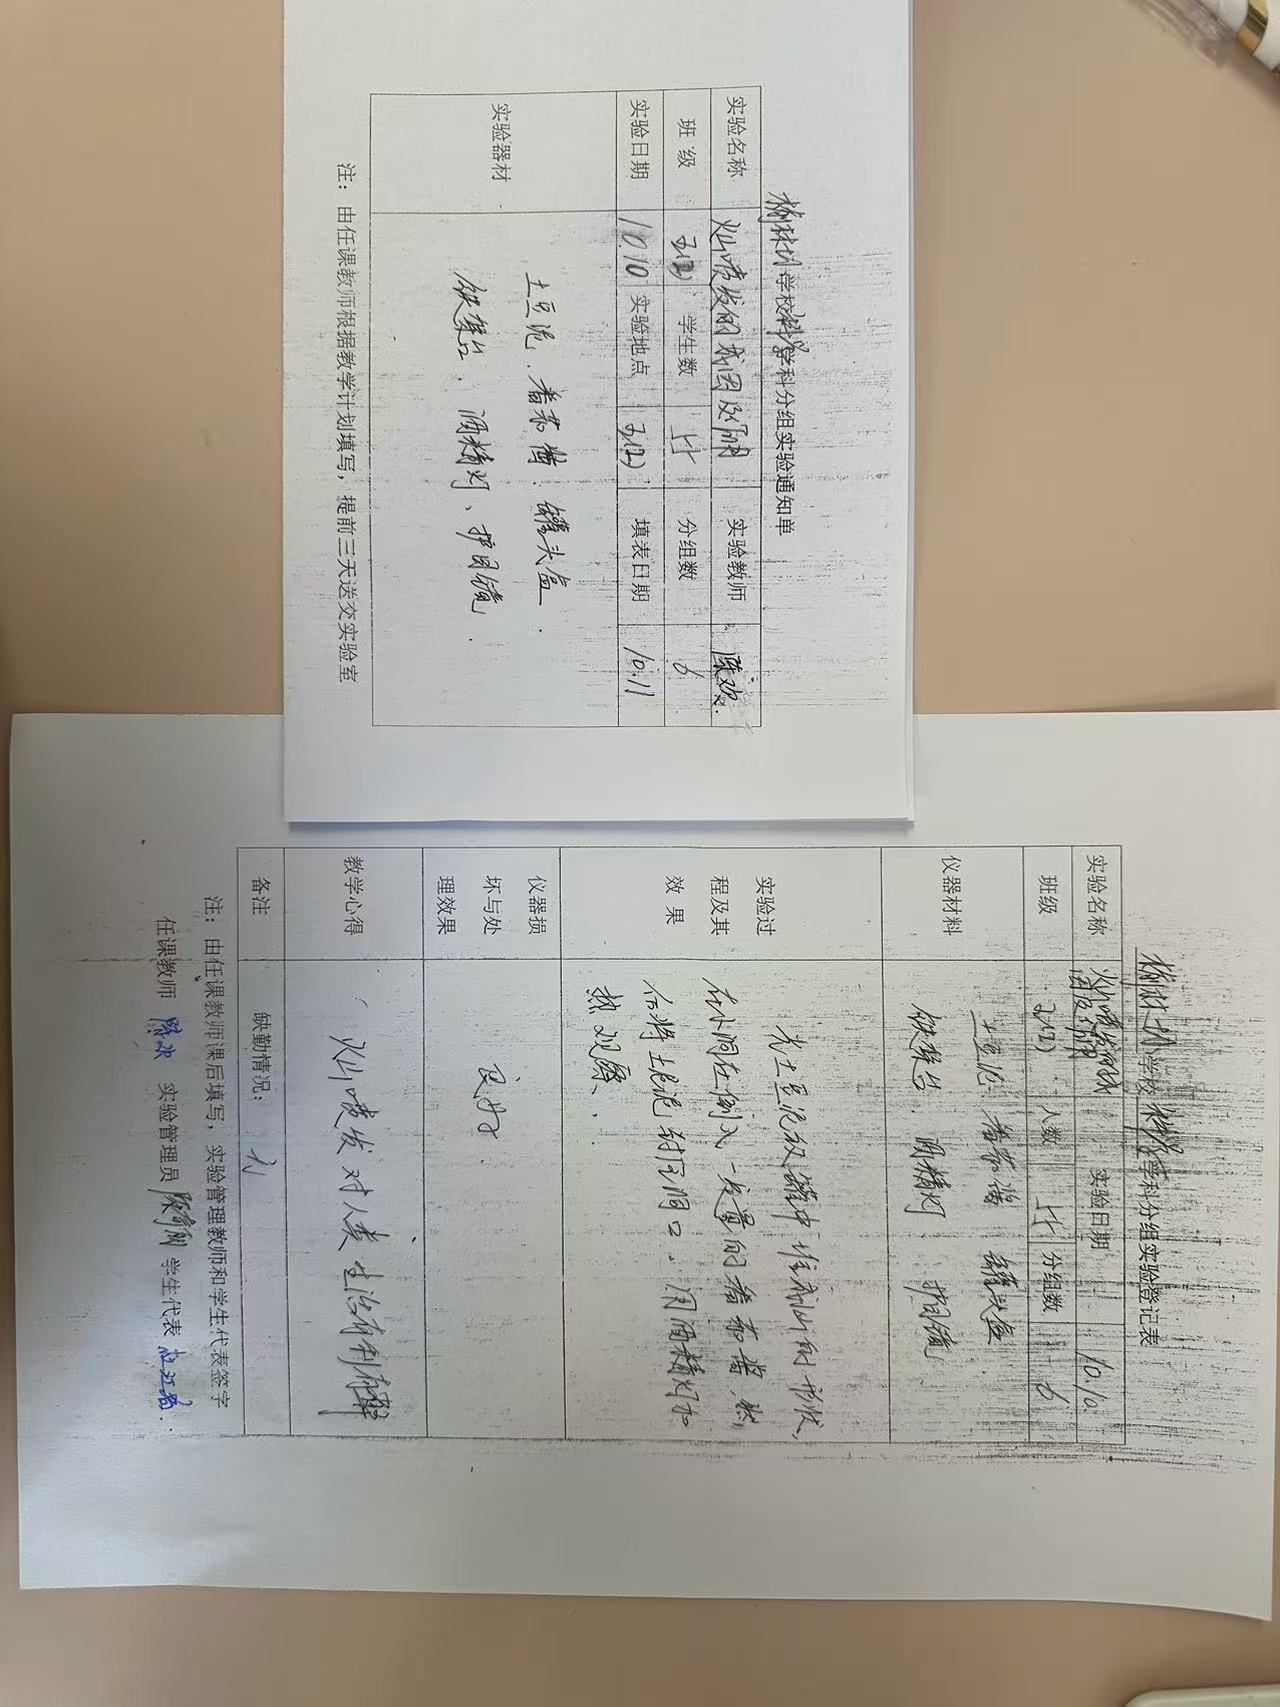 榆林坊学校科学学科分组实验通知单
实验名称 火山喷发的成因及作用 实验教师 陈欢
班级 五(2) 学生数 分组数 6
实验日期 10.10 实验地点 五(2) 填表日期 10.11
实验器材
土豆泥、番茄酱、罐头盒
铁架台、酒精灯、护目镜
注：由任课教师根据教学计划填写，提前三天送交实验室
学校科学学科分组实验登记表
实验名称 火山喷发的成因及作用 实验日期 10.10
班级 人数 分组数 6
仪器材料
土豆泥 番茄酱 罐头盒
铁架台 酒精灯 护目镜
实验过程及其效果
在小洞在倒入一定量的番茄酱，然
后将土豆泥封住洞口、用酒精灯加
热观察．
仪器损坏与处理效果 良好
教学心得 火山喷发对人类生活有利有弊
备注 缺勤情况：
注：由任课教师课后填写，实验管理教师和学生代表签字
任课教师 陈欢 实验管理员 学生代表